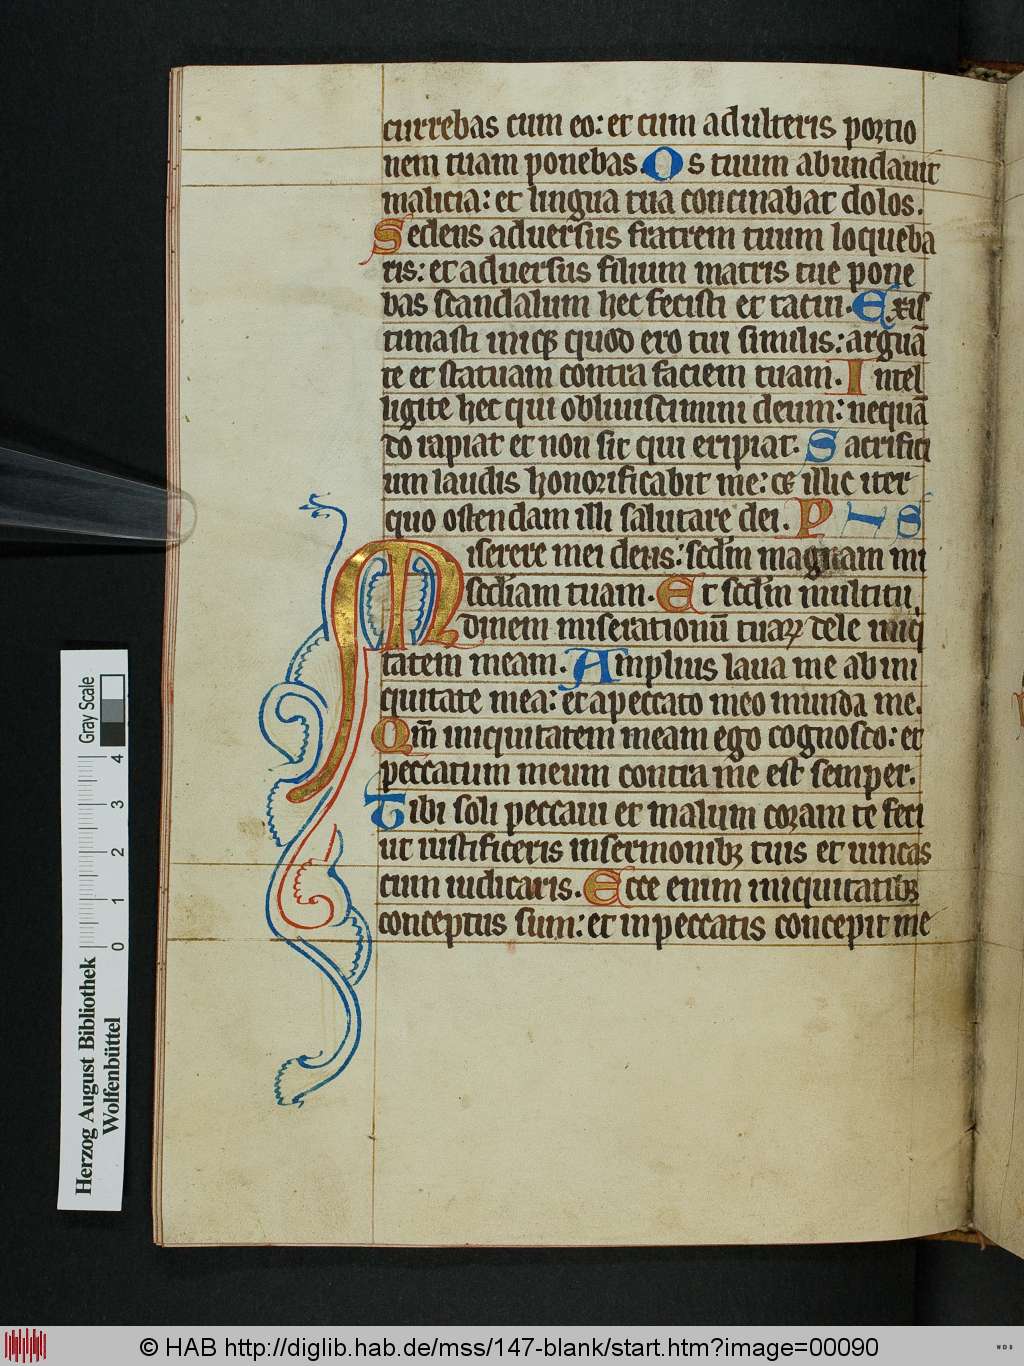 currebas cum eo: et cum adulteris portio
nem tuam ponebas. Os tuum abundauit
malicia: et lingua tua concinabat dolos.
Sedens aduersus fratrem tuum loqueba
ris: et aduersus filium matris tue pone
bas scandalum hec fecisti et tacui. Exis
timasti iniq; quod ero tui similis: arguā
te et statuam contra faciem tuam. Intel
ligite hec qui obliuiscimini deum: nequā
do rapiat et non sit qui eripiat. Sacrifici
um laudis honorificabit me: et illic iter
quo ostendam illi salutare dei. P I S
Miserere mei deus: scdm magnam mi
sediam tuam. Et scdm multitu
dinem miserationū tuaꝝ dele iniq
tatem meam. Amplius laua me ab ini
quitate mea: et a peccato meo munda me.
Qm̄ iniquitatem meam ego cognosco: et
peccatum meum contra me est semper.
Tibi soli peccaui et malum coram te feci
ut iustificeris in sermonibꝫ tuis et uincas
cum iudicaris. Ecce enim iniquitatibꝫ
conceptus sum: et in peccatis concepit me
Gray Scale
4 3 2 1 0
Herzog August Bibliothek
Wolfenbüttel
© HAB http://diglib.hab.de/mss/147-blank/start.htm?image=00090